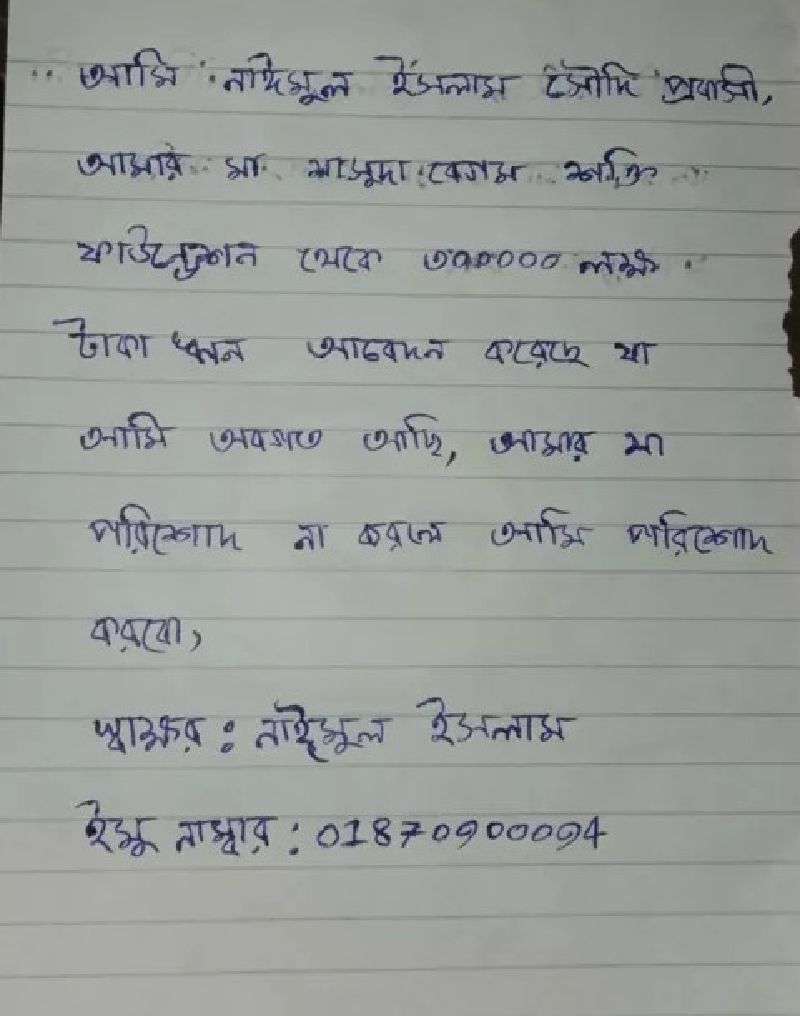 আমি নাঈমুল ইসলাম সৌদি প্রবাসী,
আমার মা মাসুদা বেগম শক্তি
ফাউন্ডেশন থেকে ৩০০০০০ লক্ষ
টাকা আবেদন করেছে যা
আমি অবগত আছি, আমার মা
পরিশোদ না করলে আমি পরিশোদ
করবো,
স্বাক্ষর : নাঈমুল ইসলাম
ইমু নাম্বার : 01870900094